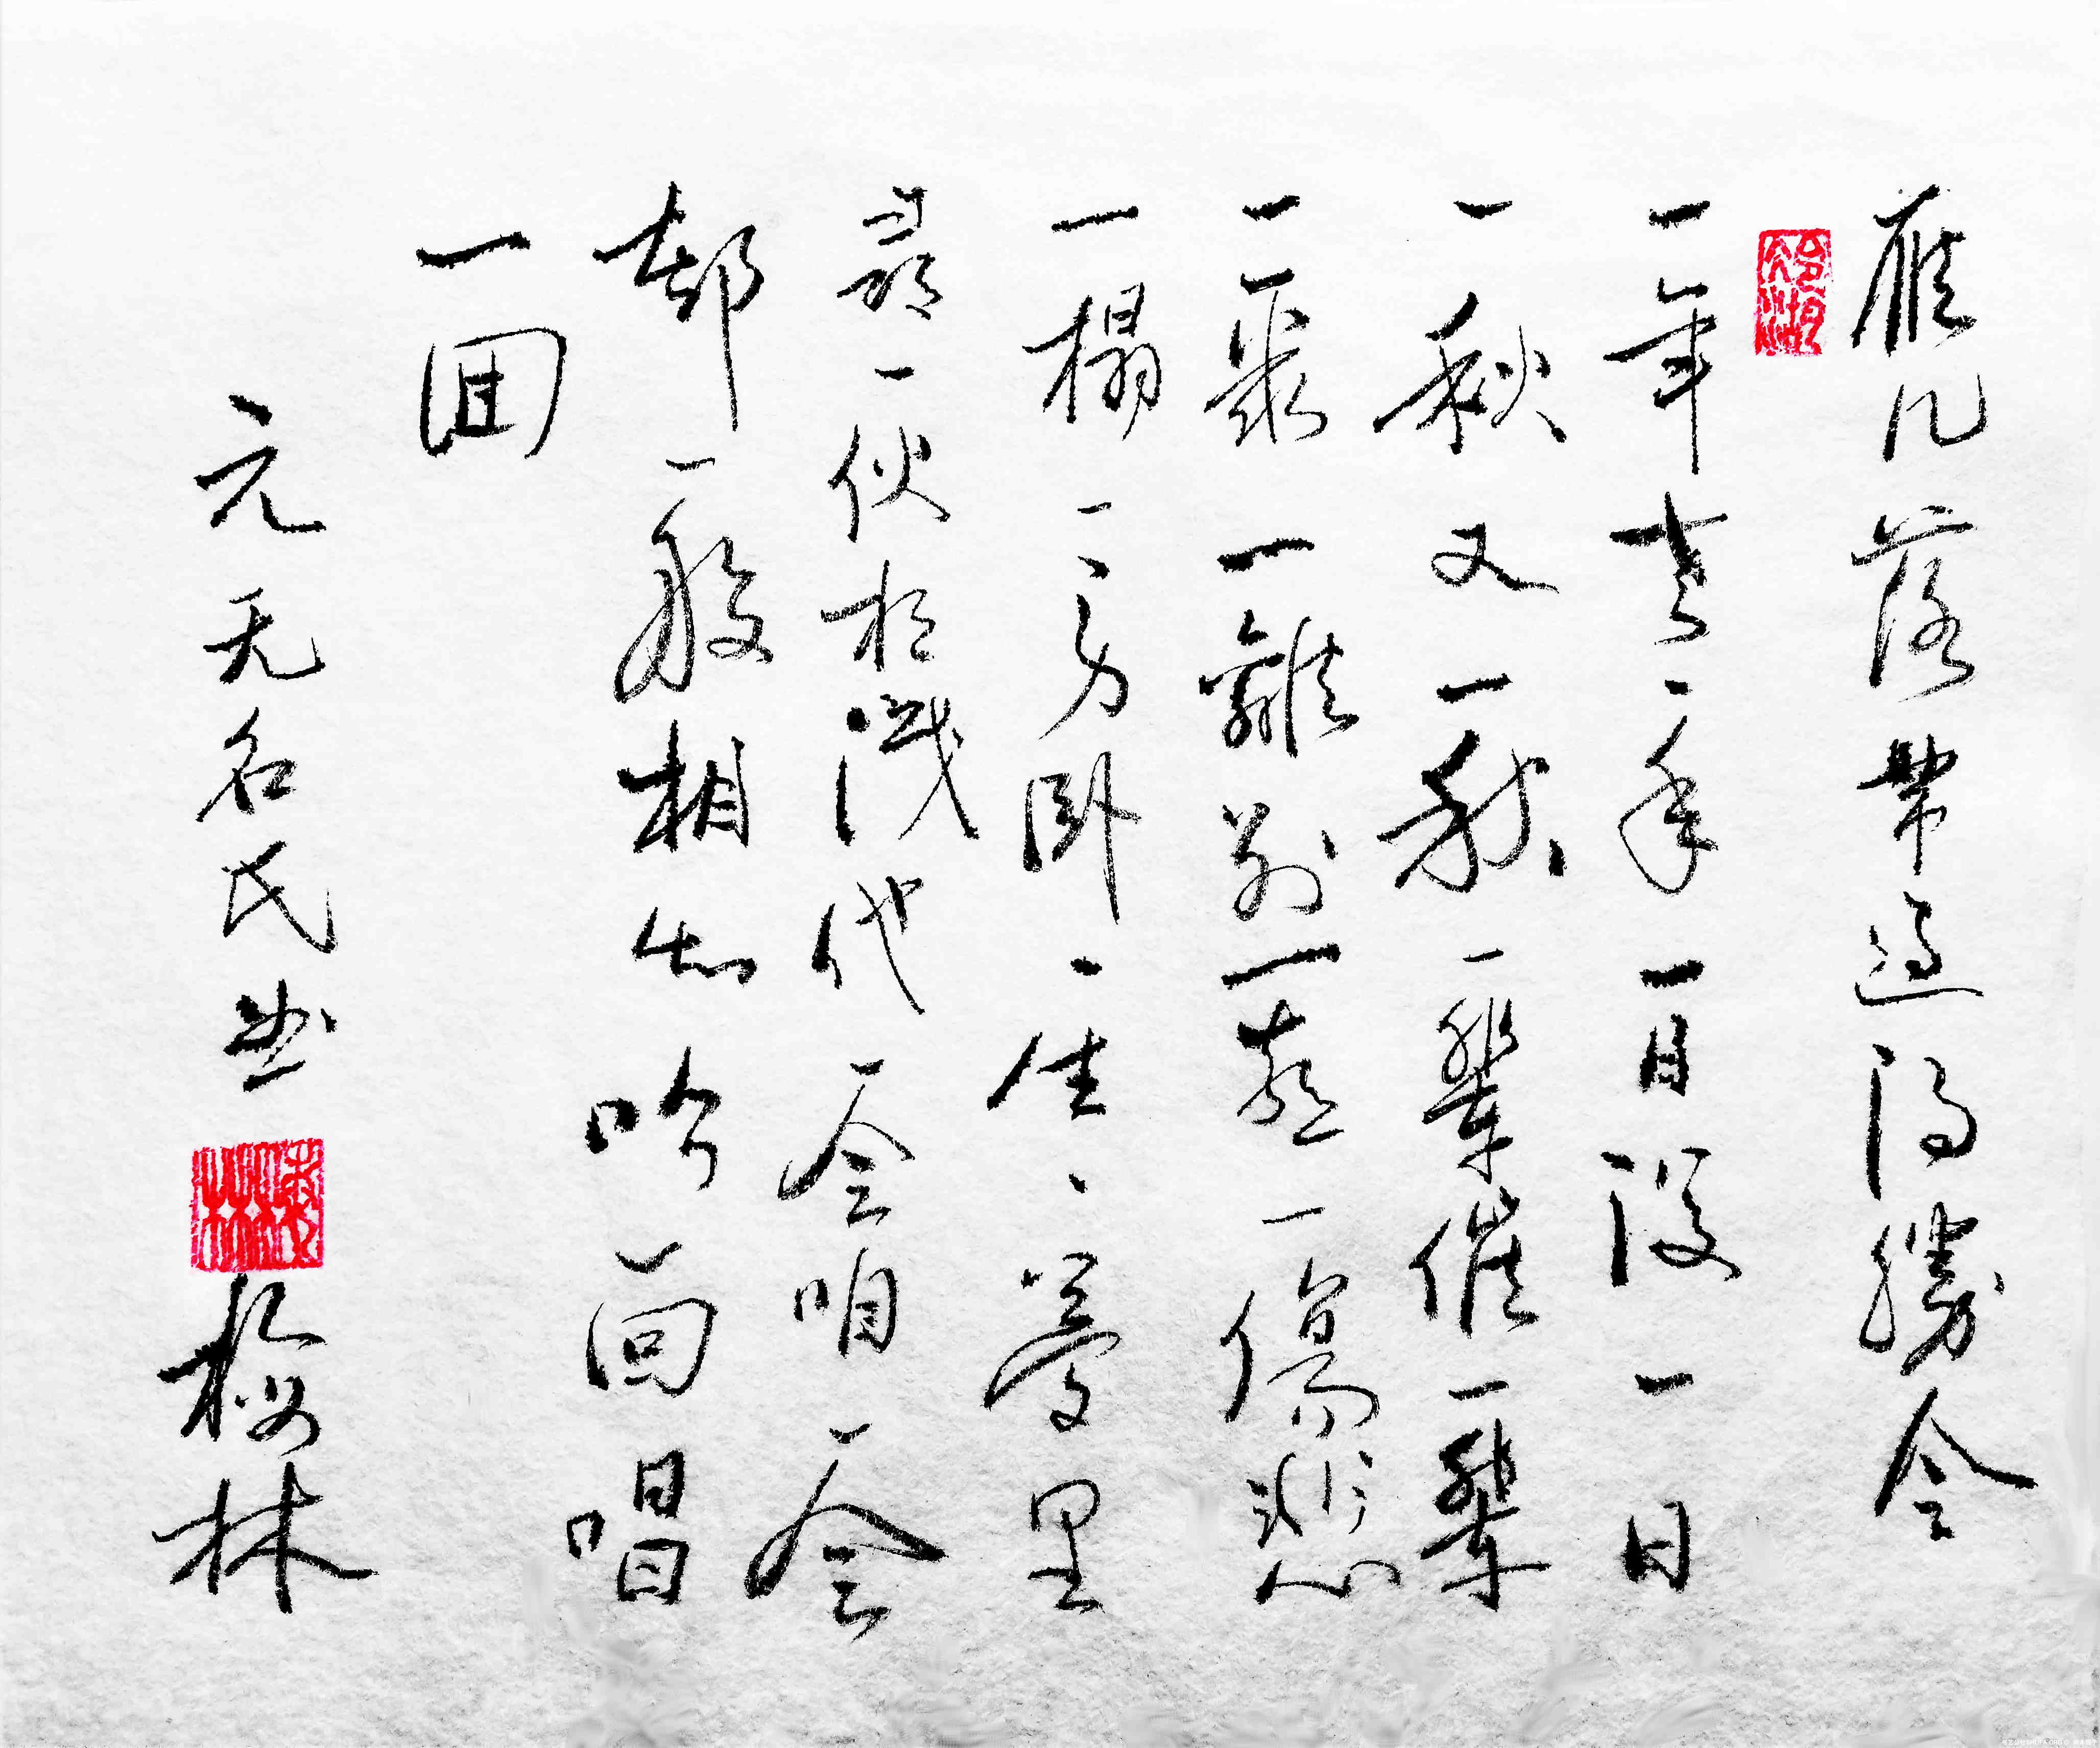 雁儿落帶過得勝令
一年老一年一日没一日
一秋又一秋一輩催一輩
一聚一離别一喜一傷悲
一榻一身卧一生一夢里
尋一伙相識他一會咱一會
都一般相知吹一回唱
一回
元无名氏曲
樱林